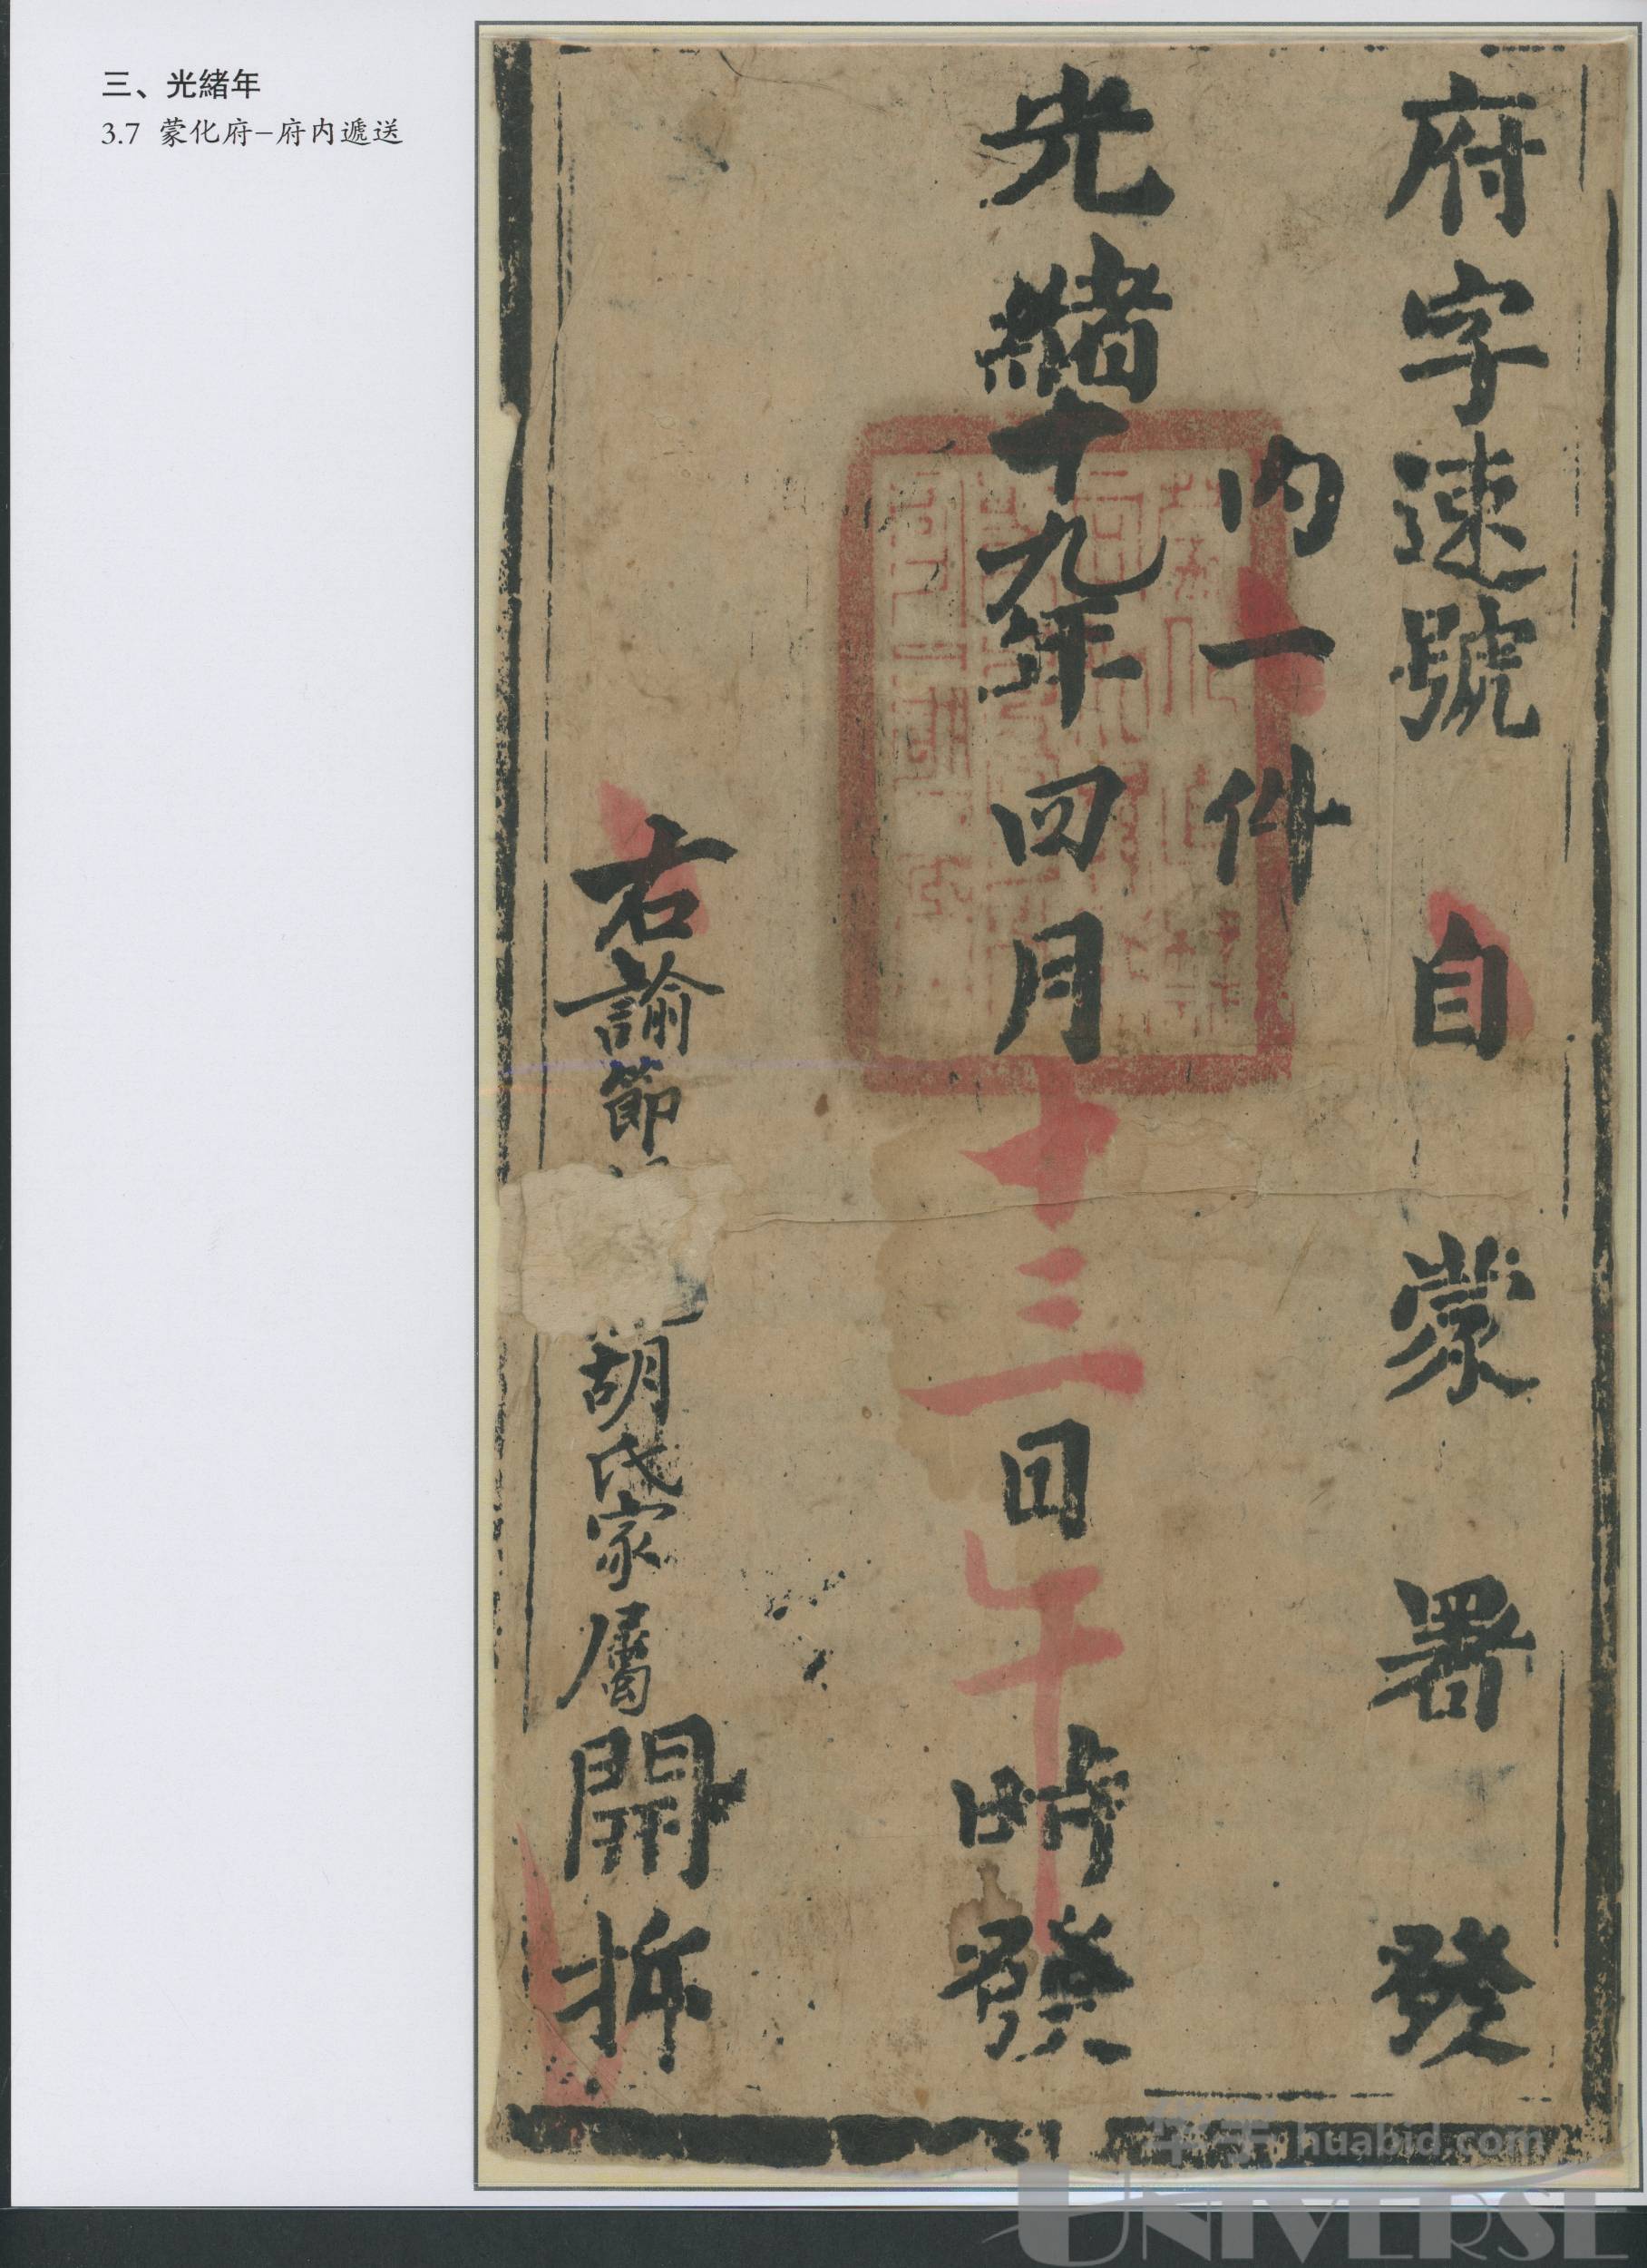 三、光緒年
3.7 蒙化府–府内遞送
府字速號 自 蒙 署 發
内一件
光緒十九年四月十三日午時發
右諭節 胡氏家屬開拆
华宇 huabid.com
UNIVERSE